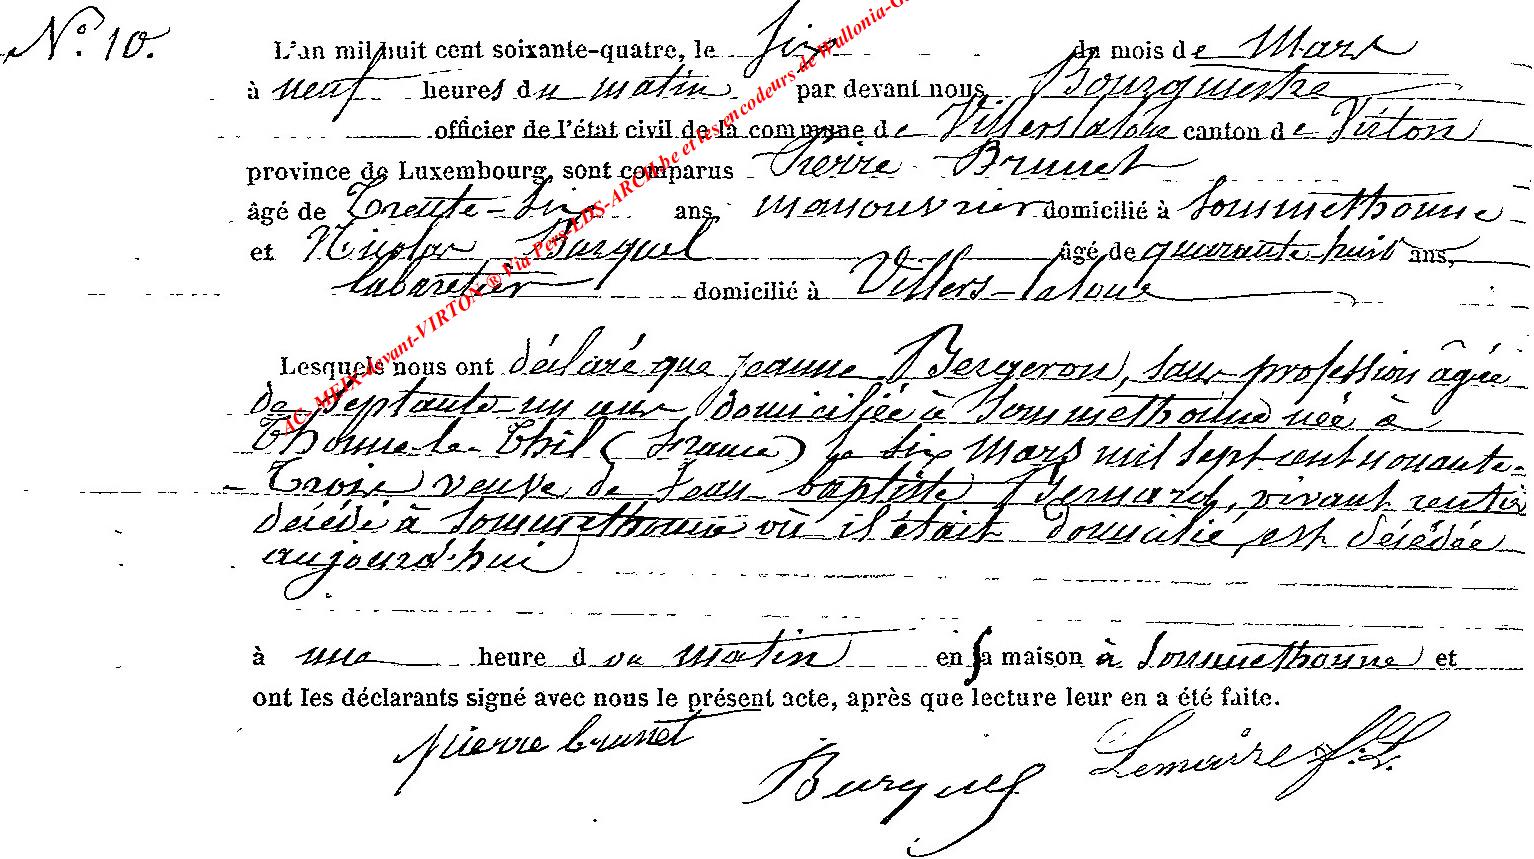 N.° 10.
L'an mil huit cent soixante-quatre, le six du mois de Mars
à neuf heures du matin par devant nous Bourgmestre
officier de l'état civil de la commune de Villers la loue canton de Virton
province de Luxembourg, sont comparus Pierre Brunet
âgé de Trente-Six ans, manouvrier domicilié à Sommethonne
et Nicolas Burquel âgé de quarante-huit ans,
Cabaretier domicilié à Villers-la loue
Lesquels nous ont déclaré que jeanne Bergeron, sans profession âgée
de Septante-un ans domiciliée à Sommethonne née à
Thonne-le-Thil (France) le six Mars mil sept cent nonante-
Trois veuve de Jean-baptiste Bernard, vivant rentier
décédé à Sommethonne où il était domicilié, est décédée
aujourd'hui
à une heure du matin en sa maison à Sommethonne et
ont les déclarants signé avec nous le présent acte, après que lecture leur en a été faite.
pierre brunet
Burquel
Lemaire f. L.
AC-MEIX-devant-VIRTON ® Via Pers-LDS-ARCH.be et les encodeurs de Wallonia-G